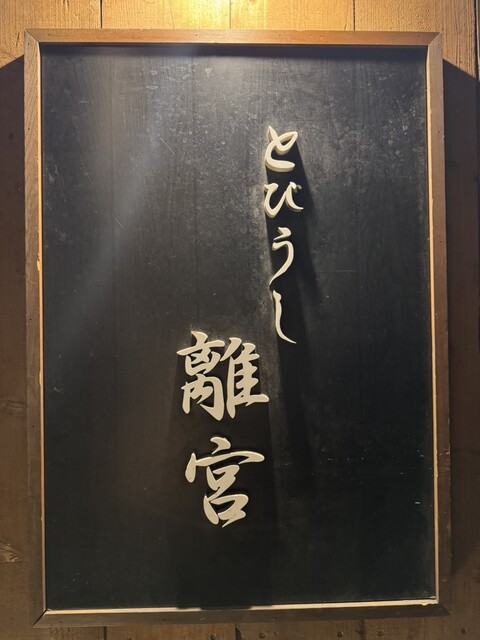 とびうし
離宮